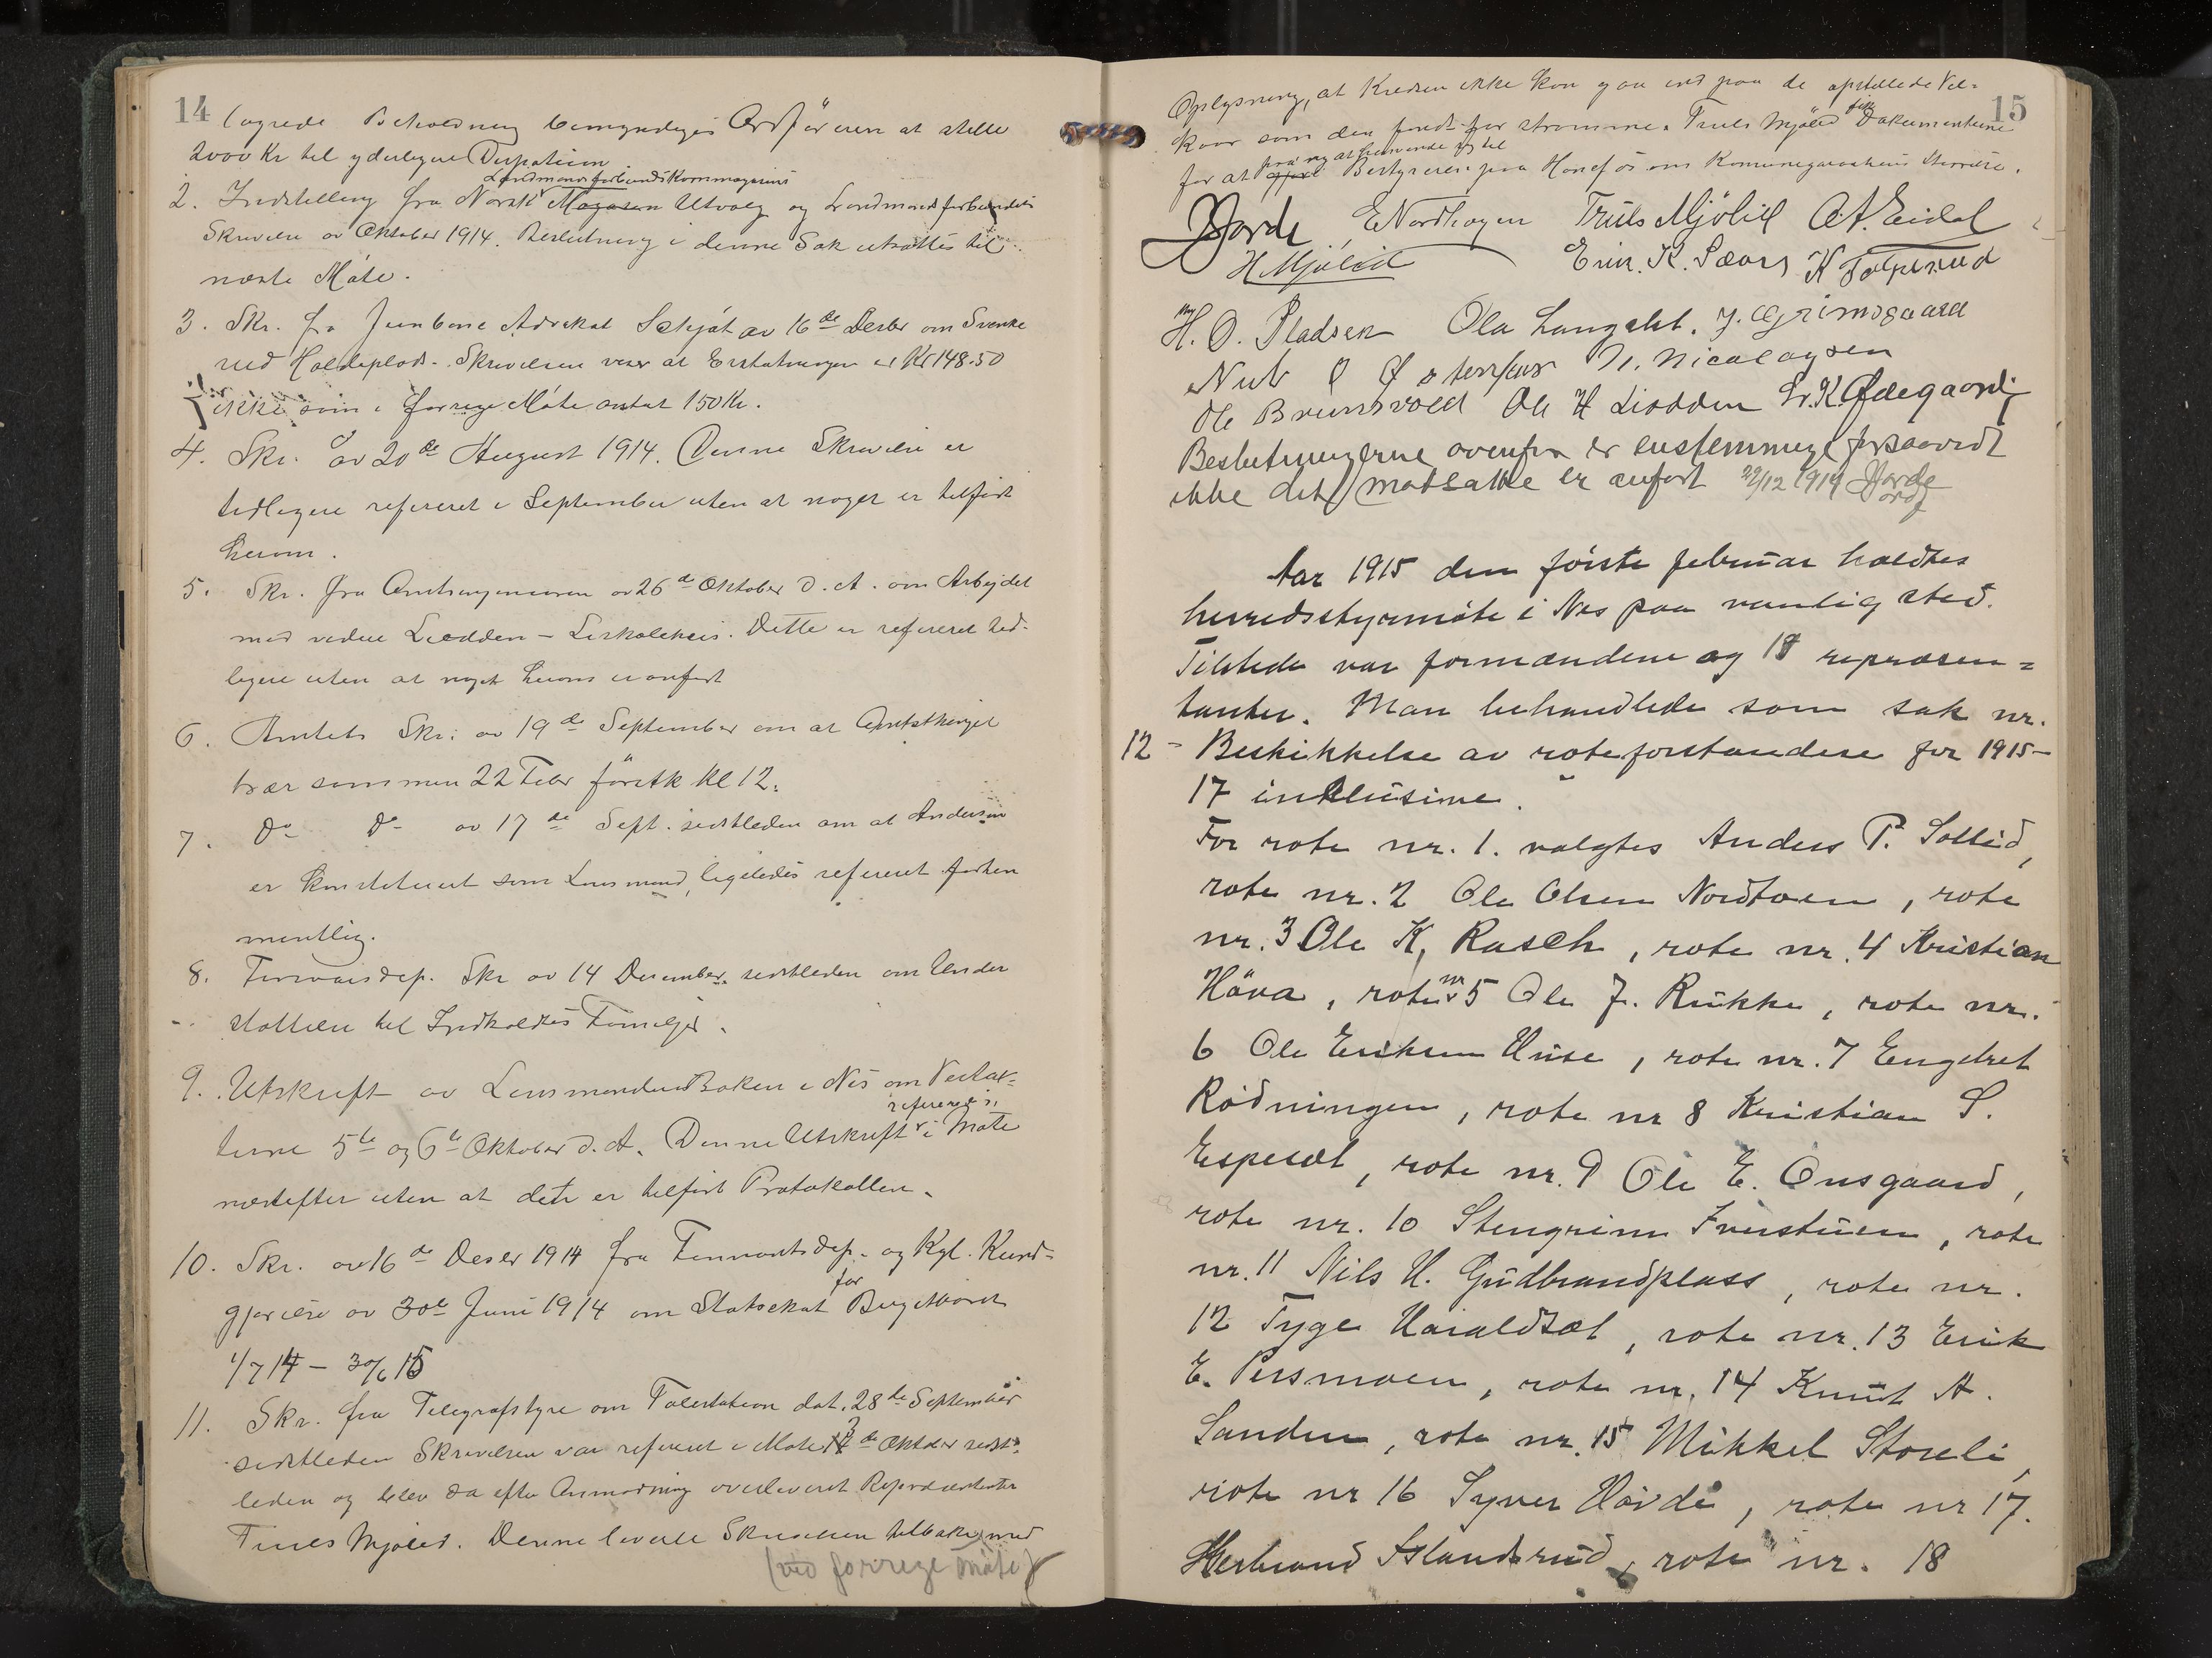 14
lagrede Beholdning bemyndiges Ordføreren at stille
2000 Kr til yderligere Disposition
Landmandsforbunds Kornmagasins
2. Indstilling fra Norsk Magasin Utvalg og Landmandsforbundets
Skrivelse av Oktober 1914. Beslutning i denne Sak utsættes til
næste Møte.
3. Skr. fra Advokat av 16de Desbr om
ved Holdeplads. Skrivelsen viser at Erstatningen er Kr 148.50
ikke som i forrige Møte antat 150 Kr.
4. Skr. av 20de August 1914. Denne Skrivelse er
tidligere refereret i September uten at noget er tilført
herom.
5. Skr. fra Amtsingeniøren av 26de Oktober d. A. om Arbeidet
med veien Liodden – Dette er refereret tid-
ligere uten at noget herom er anført
6. Amtets Skr. av 19de September om at Amtsthinget
træer sammen 22 Febr førstk Kl 12.
7. Do Do av 17de Sept. sidstleden om at Andersen
er konstitueret som Lensmand, ligeledes refereret forhen
mentlig.
8. Forsvarsdep. Skr av 14 Desember sidstleden om Under
støttelse til Indkaldtes Familjer.
9. Utskrift av Lensmandens Boken i Nes om
refereres
5te og 6te Oktober d. A. Denne Utskrift i Møte
næstefter uten at dette er tilført Protokollen.
10. Skr. av 16de Desbr 1914 fra Finansdep. og Kgl. Kund-
for
gjørelse av 30te Juni 1914 om Statsskat Budgetaaret
1/7 14 – 30/6 15
11. Skr. fra Telegrafstyre om Talestation dat. 28de September
sidstleden Skrivelsen var refereret i Møte 3de Oktober sidst-
leden og blev da efter Anmodning overleveret Repræsentanten
Truls Mjøled. Denne leverte Skrivelsen tilbake med
(ved forrige møte)
15
Oplysning, at Kredsen ikke kan gaa ind paa de opstillede Vil-
fik
kaar som den fandt for stramme. Truls Mjøled Dokumenterne
paa ny at henvende sig til
for at Bestyreren paa Hønefos om Komunegarantiens Størrelse.
Jorde E Nordhagen Truls Mjölid O. A. Eidal
H Mjölid Erik K. Sævre K Tolpinrud
H. O. Pladsen Ola Langslet. J. Grimsgaard
N. Nicolaysen
Ole Brunsvold Ole H Liodden Er. K. Ødegaard
Beslutningerne ovenfor er enstemmige forsaavidt
ikke det motsatte er anført 22/12 1914 Jorde
ordf
Aar 1915 den første februar holdtes
herredsstyrmøte i Nes paa vanlig sted.
Tilstede var formændene og 18 repræsen=
tanter. Man behandlede som sak nr.
12 - Beskikkelse av roteforstandere for 1915–
17 inklusive.
For rote nr. 1. valgtes Anders P. Solleid,
rote nr. 2 Ole Olsen Nordtoen, rote
nr. 3 Ole K. Rasch, rote nr. 4 Kristian
Háva, rote nr 5 Ole J. Rukke, rote nr.
6 Ole Eriksen Huse, rote nr. 7 Engebret
Rödningen, rote nr 8 Kristian S.
Espeset, rote nr. 9 Ole E. Onsgaard,
rote nr. 10 Stengrim Iverstuen, rote
nr. 11 Nils H. Gudbrandsplass, rote nr.
12 Tyge Haraldset, rote nr. 13 Erik
E. Persmoen, rote nr. 14 Knut A.
Sanden, rote nr. 15 Mikkel Storeli,
rote nr 16 Syver Hövde, rote nr 17.
Herbrand Islandsrud, rote nr. 18